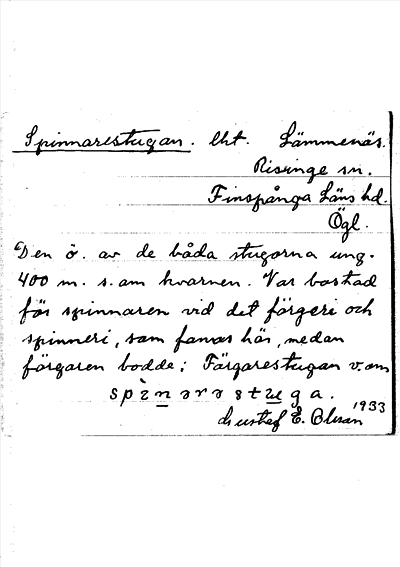 Spinnarestugan. lht. Lämmenäs.
Risinge sn.
Finspånga Läns hd.
Ögl.
Den ö. av de båda stugorna ung.
400 m. s. om kvarnen. Var bostad
för spinnaren vid det färgeri och
spinneri, som fanns här, medan
färgaren bodde i Färgarestugan v. om
spìnərəstuga.
Gustaf E. Olsson 1933